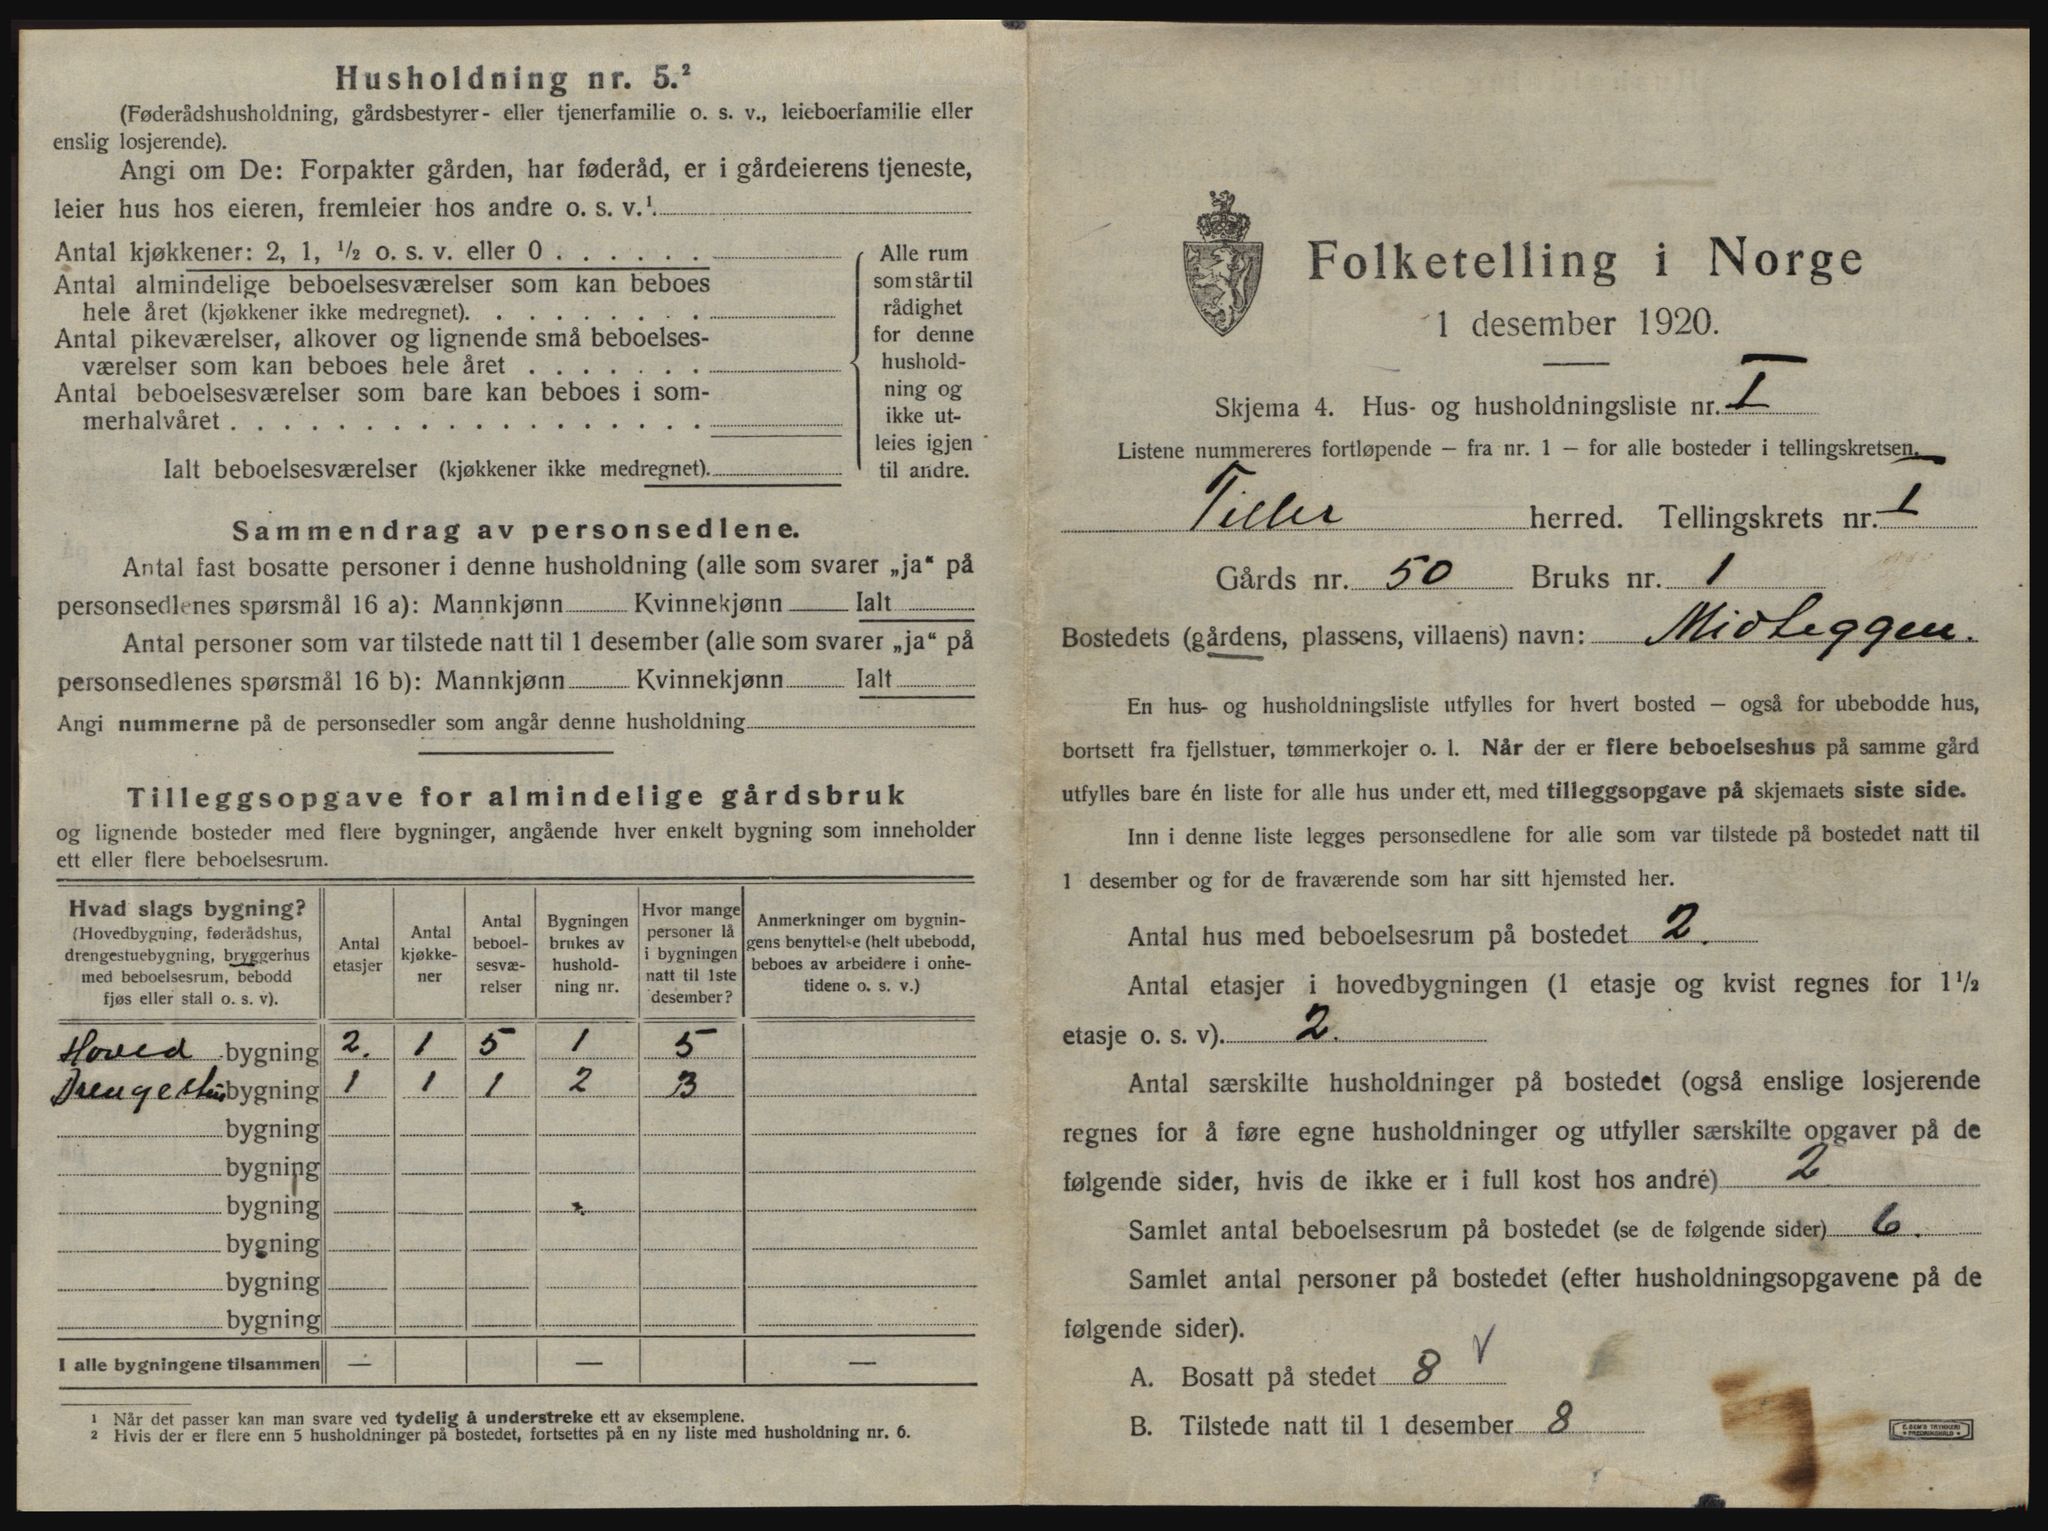 Husholdning nr. 5.²
(Føderådshusholdning, gårdsbestyrer- eller tjenerfamilie o. s. v., leieboerfamilie eller
enslig losjerende).
Angi om De: Forpakter gården, har føderåd, er i gårdeierens tjeneste,
leier hus hos eieren, fremleier hos andre o. s. v.¹
Antal kjøkkener: 2, 1, ½ o. s. v. eller 0
Antal almindelige beboelsesværelser som kan beboes
hele året (kjøkkener ikke medregnet)
Antal pikeværelser, alkover og lignende små beboelses-
værelser som kan beboes hele året
Antal beboelsesværelser som bare kan beboes i som-
merhalvåret
Ialt beboelsesværelser (kjøkkener ikke medregnet)
Alle rum
som står til
rådighet
for denne
hushold-
ning og
ikke ut-
leies igjen
til andre.
Sammendrag av personsedlene.
Antal fast bosatte personer i denne husholdning (alle som svarer „ja“ på
personsedlenes spørsmål 16 a): Mannkjønn Kvinnekjønn Ialt
Antal personer som var tilstede natt til 1 desember (alle som svarer „ja“ på
personsedlenes spørsmål 16 b): Mannkjønn Kvinnekjønn Ialt
Angi nummerne på de personsedler som angår denne husholdning
Tilleggsopgave for almindelige gårdsbruk
og lignende bosteder med flere bygninger, angående hver enkelt bygning som inneholder
ett eller flere beboelsesrum.
Hvad slags bygning?
(Hovedbygning, føderådshus,
drengestuebygning, bryggerhus
med beboelsesrum, bebodd
fjøs eller stall o. s. v).
Antal
etasjer
Antal
kjøkke-
ner
Antal
beboel-
sesvæ-
relser
Bygningen
brukes av
hushold-
ning nr.
Hvor mange
personer lå
i bygningen
natt til 1ste
desember?
Anmerkninger om bygnin-
gens benyttelse (helt ubebodd,
beboes av arbeidere i onne-
tidene o. s. v.)
Hoved bygning 2. 1 5 1 5
Drengestu bygning 1 1 1 2 3
bygning
bygning
bygning
bygning
bygning
bygning
I alle bygningene tilsammen — — —
1 Når det passer kan man svare ved tydelig å understreke ett av eksemplene.
2 Hvis der er flere enn 5 husholdninger på bostedet, fortsettes på en ny liste med husholdning nr. 6.
Folketelling i Norge
1 desember 1920.
Skjema 4. Hus- og husholdningsliste nr. I
Listene nummereres fortløpende – fra nr. 1 – for alle bosteder i tellingskretsen.
Tiller herred. Tellingskrets nr. I
Gårds nr. 50 Bruks nr. 1
Bostedets (gårdens, plassens, villaens) navn: Midteggen.
En hus- og husholdningsliste utfylles for hvert bosted – også for ubebodde hus,
bortsett fra fjellstuer, tømmerkojer o. l. Når der er flere beboelseshus på samme gård
utfylles bare én liste for alle hus under ett, med tilleggsopgave på skjemaets siste side.
Inn i denne liste legges personsedlene for alle som var tilstede på bostedet natt til
1 desember og for de fraværende som har sitt hjemsted her.
Antal hus med beboelsesrum på bostedet 2.
Antal etasjer i hovedbygningen (1 etasje og kvist regnes for 1½
etasje o. s. v). 2.
Antal særskilte husholdninger på bostedet (også enslige losjerende
regnes for å føre egne husholdninger og utfyller særskilte opgaver på de
følgende sider, hvis de ikke er i full kost hos andre) 2
Samlet antal beboelsesrum på bostedet (se de følgende sider) 6.
Samlet antal personer på bostedet (efter husholdningsopgavene på de
følgende sider).
A. Bosatt på stedet 8 √
B. Tilstede natt til 1 desember 8